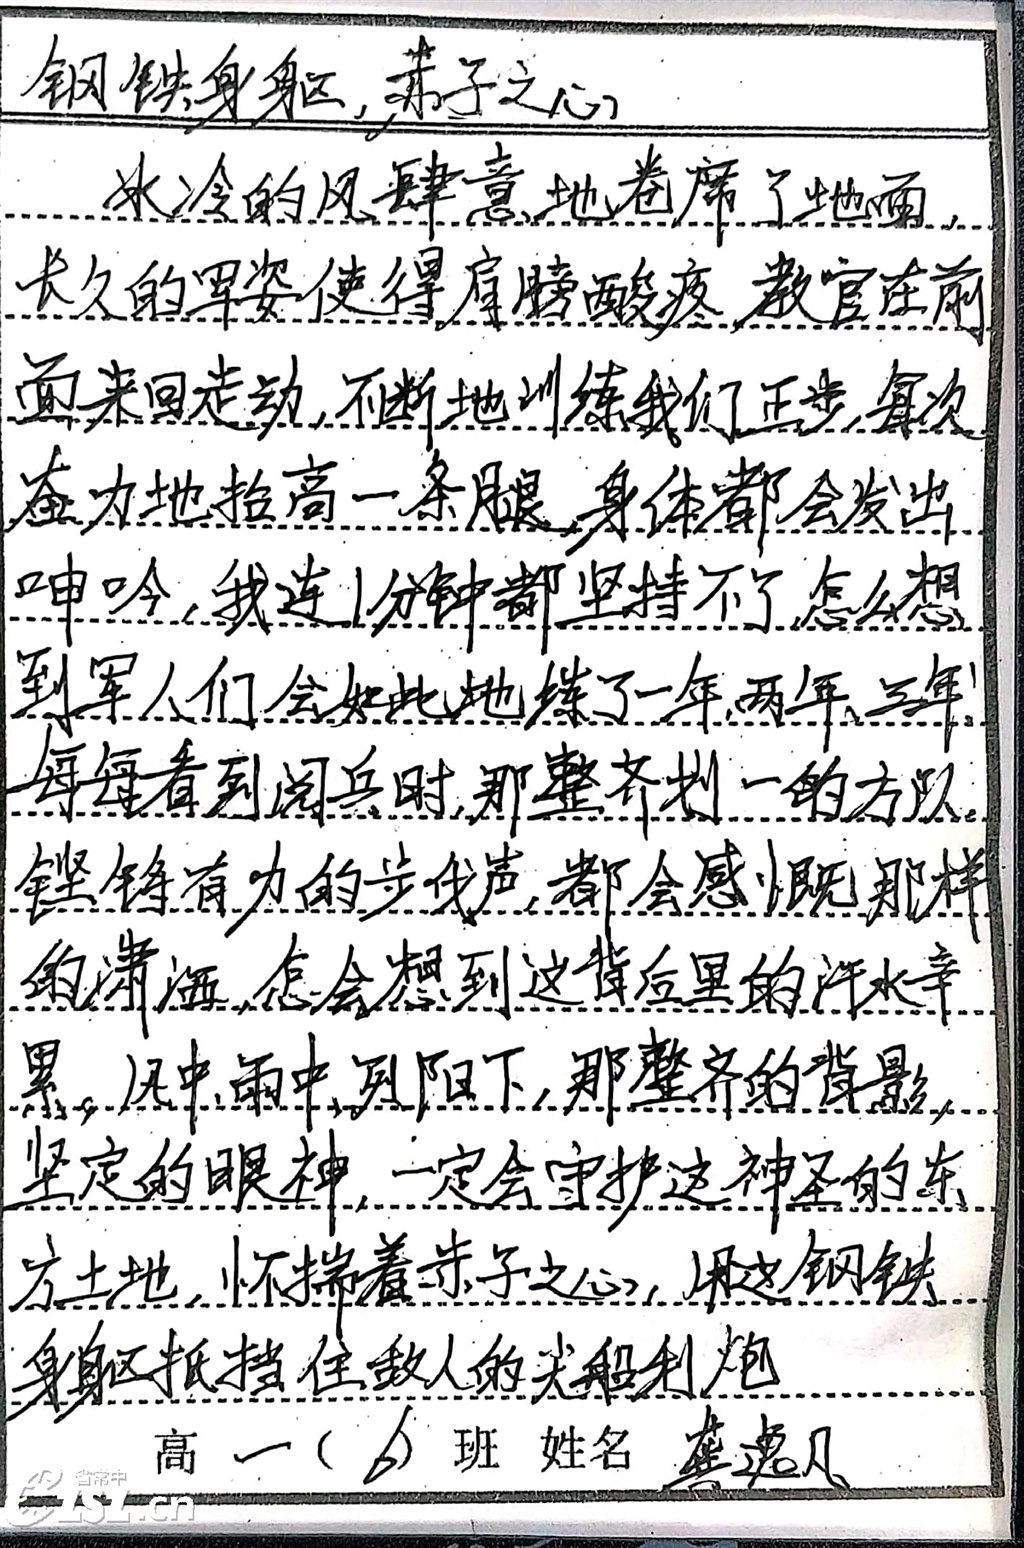 钢铁身躯，赤子之心
冰冷的风肆意地卷席了地面，
长久的军姿使得肩膀酸疼，教官在前
面来回走动，不断地训练我们正步，每次
奋力地抬高一条腿，身体都会发出
呻吟，我连1分钟都坚持不了，怎么想
到军人们会如此地练了一年、两年、三年！
每每看到阅兵时，那整齐划一的方队，
铿锵有力的步伐声，都会感慨那样
的潇洒，怎会想到这背后里的汗水辛
累。风中、雨中、烈阳下，那整齐的背影，
坚定的眼神，一定会守护这神圣的东
方土地，怀揣着赤子之心，用这钢铁
身躯抵挡住敌人的尖船利炮
高一（6）班 姓名 龚逸凡
省常中
CZSZ.cn